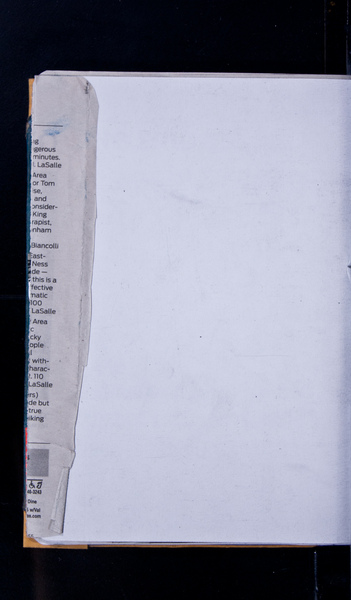 gerous
minutes.
LaSalle
Area
or Tom
se,
and
onsider-
King
rapist,
nham
Biancolli
East-
Ness
de —
this is a
fective
matic
100
LaSalle
Area
c
cky
ople
with-
harac-
. 110
LaSalle
ers)
de but
-true
iking
46-3243
One
w/Val